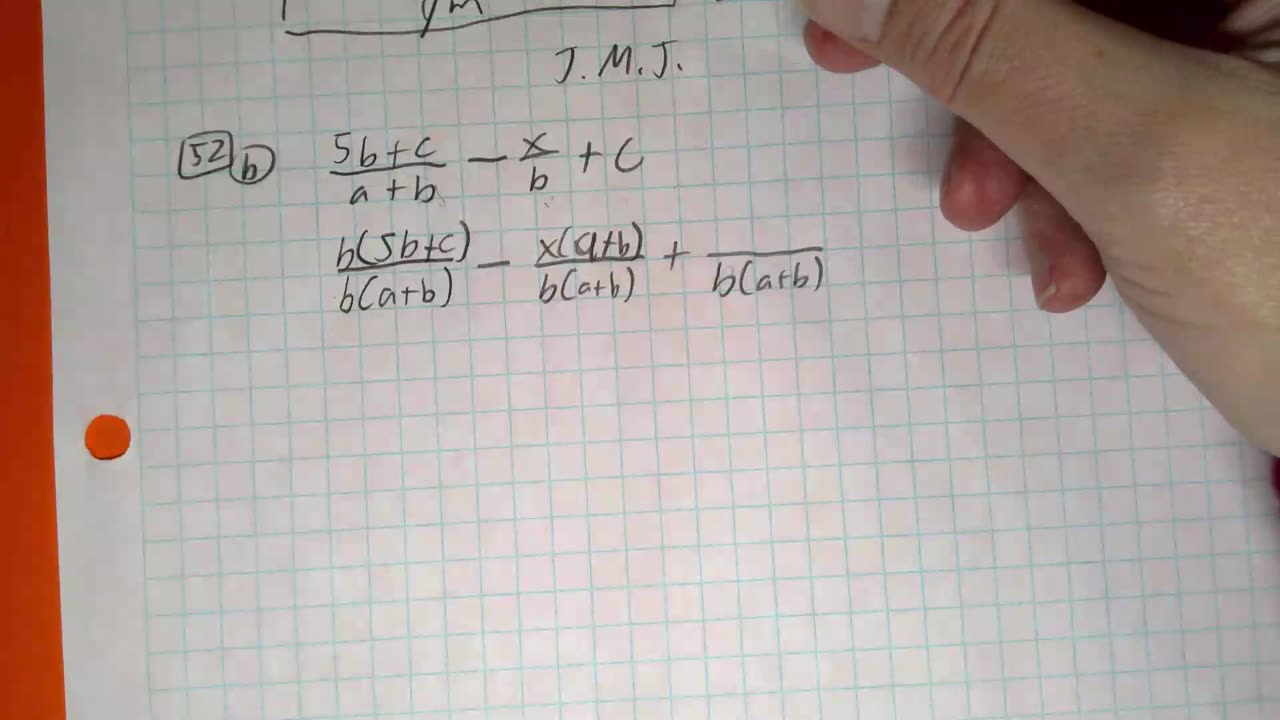 J.M.J.
52 b (5b+c)/(a+b) - x/b + c
b(5b+c)/b(a+b) - x(a+b)/b(a+b) + /b(a+b)